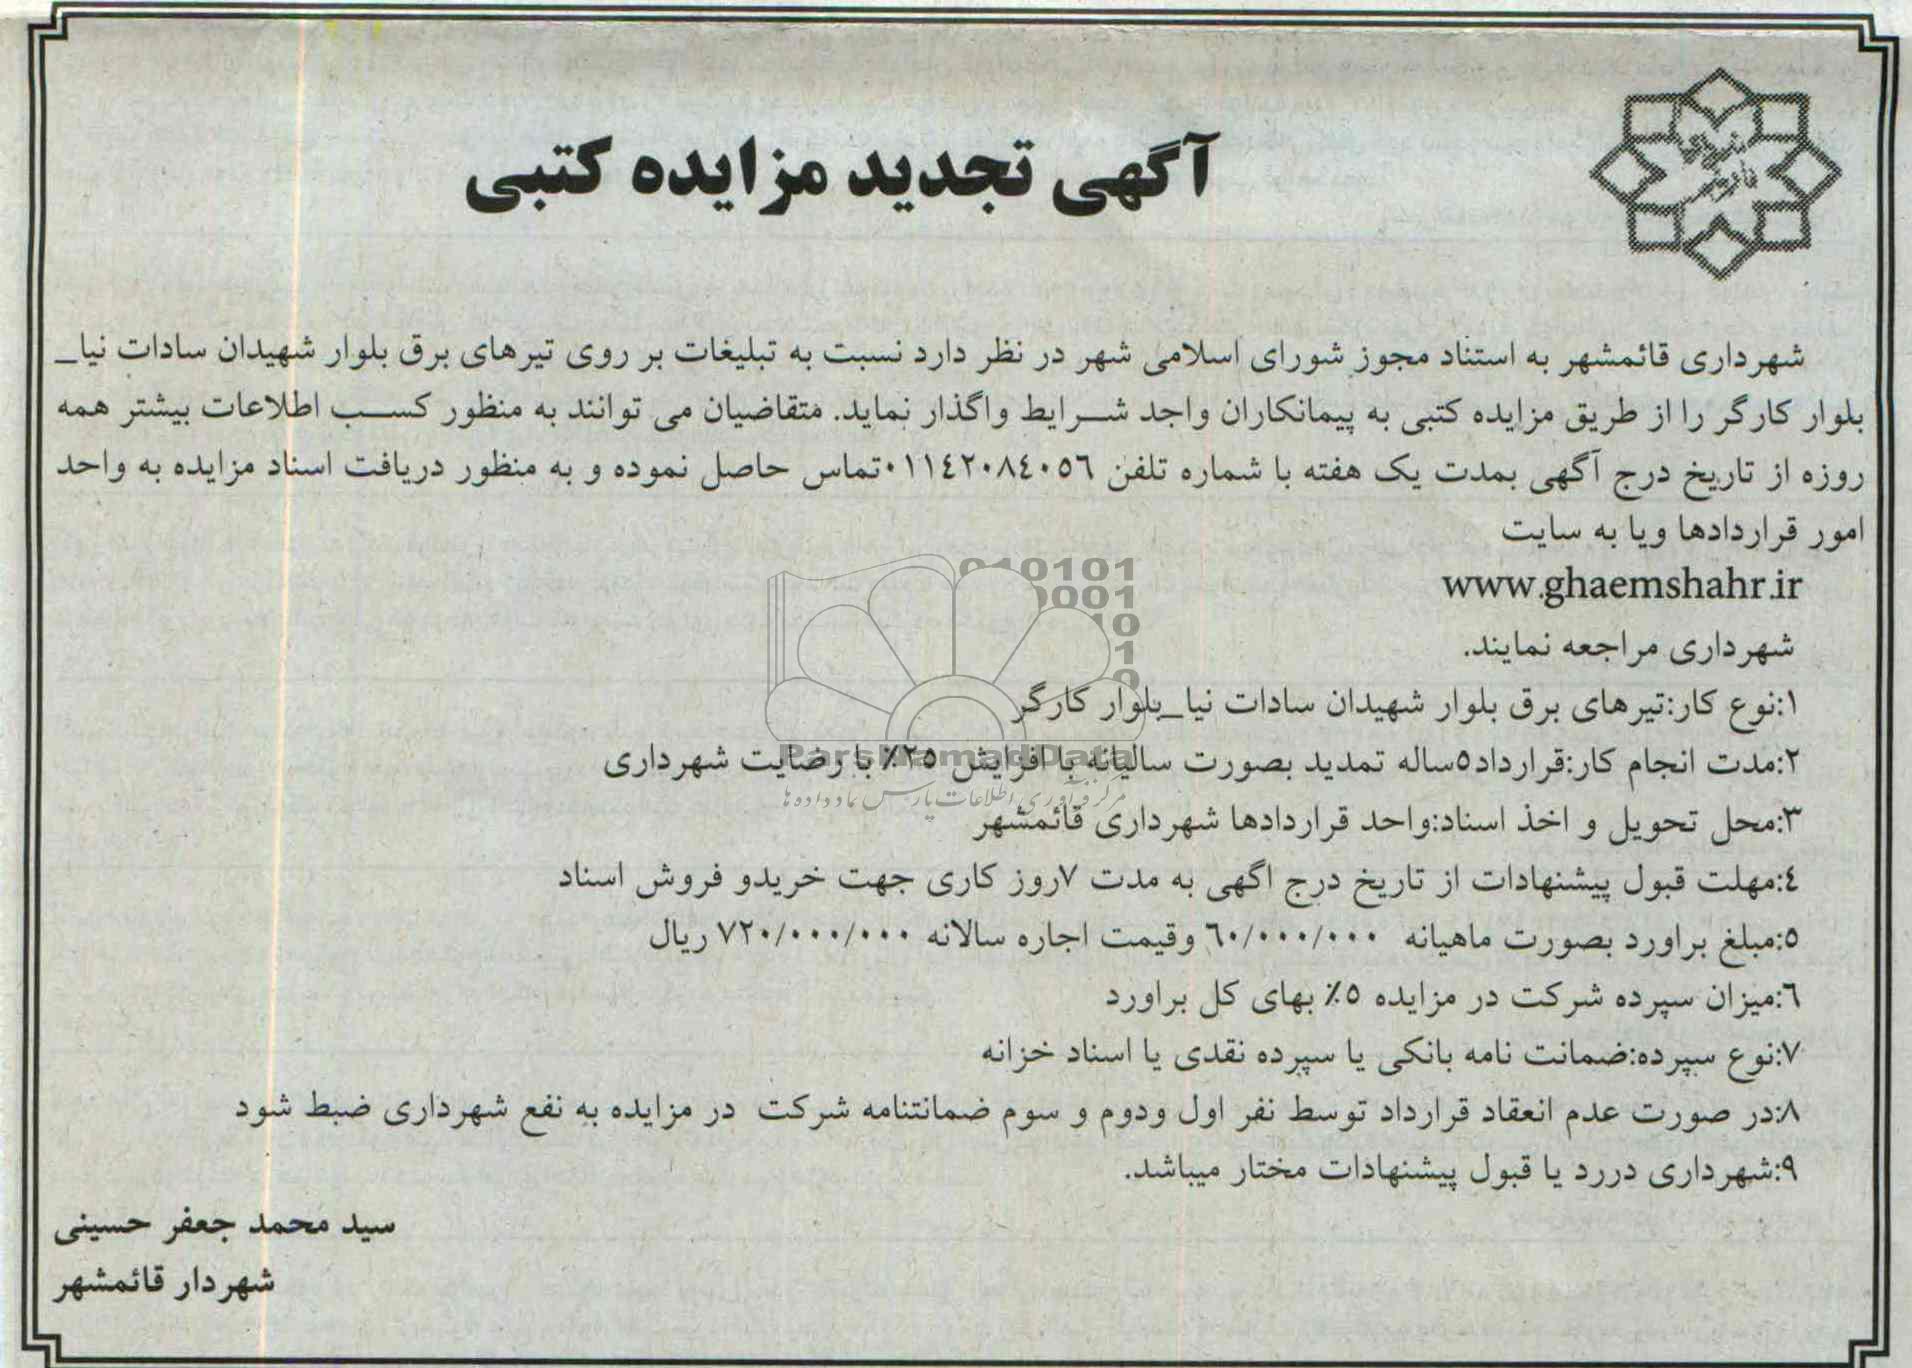 شهرداری
قائمشهر
آگهی تجدید مزایده کتبی
شهرداری قائمشهر به استناد مجوز شورای اسلامی شهر در نظر دارد نسبت به تبلیغات بر روی تیرهای برق بلوار شهیدان سادات نیا_
بلوار کارگر را از طریق مزایده کتبی به پیمانکاران واجد شرایط واگذار نماید. متقاضیان می توانند به منظور کسب اطلاعات بیشتر همه
روزه از تاریخ درج آگهی بمدت یک هفته با شماره تلفن ٠١١٤٢٠٨٤٠٥٦تماس حاصل نموده و به منظور دریافت اسناد مزایده به واحد
امور قراردادها ویا به سایت
www.ghaemshahr.ir
شهرداری مراجعه نمایند.
١:نوع کار:تیرهای برق بلوار شهیدان سادات نیا_بلوار کارگر
٢:مدت انجام کار:قرارداد٥ساله تمدید بصورت سالیانه با افزایش ٢٥٪ با رضایت شهرداری
٣:محل تحویل و اخذ اسناد:واحد قراردادها شهرداری قائمشهر
٤:مهلت قبول پیشنهادات از تاریخ درج اگهی به مدت ٧روز کاری جهت خریدو فروش اسناد
٥:مبلغ براورد بصورت ماهیانه ٦٠/٠٠٠/٠٠٠ وقیمت اجاره سالانه ٧٢٠/٠٠٠/٠٠٠ ریال
٦:میزان سپرده شرکت در مزایده ٥٪ بهای کل براورد
٧:نوع سپرده:ضمانت نامه بانکی یا سپرده نقدی یا اسناد خزانه
٨:در صورت عدم انعقاد قرارداد توسط نفر اول ودوم و سوم ضمانتنامه شرکت در مزایده به نفع شهرداری ضبط شود
٩:شهرداری دررد یا قبول پیشنهادات مختار میباشد.
سید محمد جعفر حسینی
شهردار قائمشهر
010101
0001
10
1
0
ParsNamadData
مرکز فرآوری اطلاعات پارس نماد داده ها